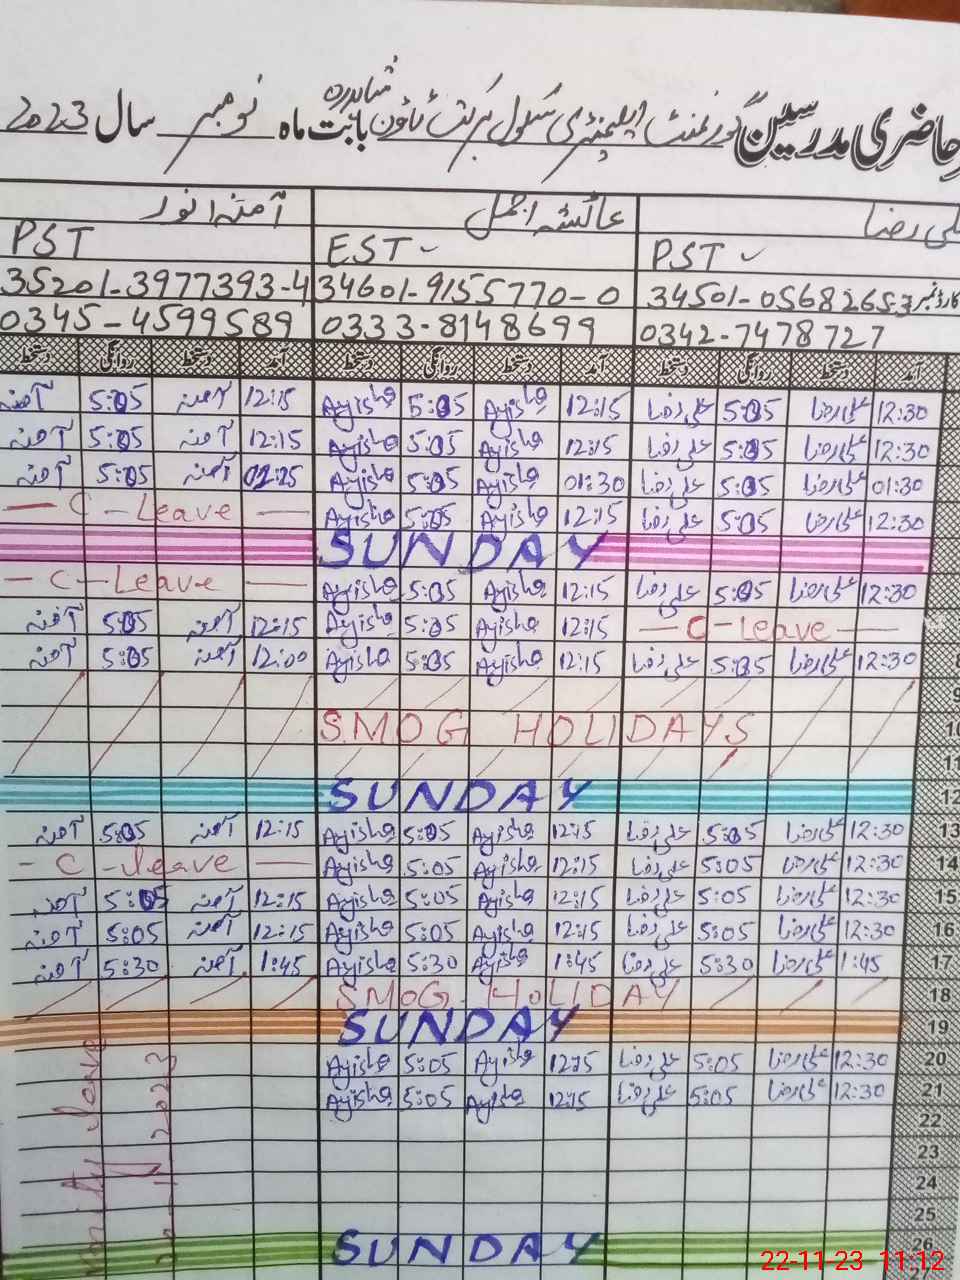 حاضری مدرسین گورنمنٹ ایلیمنٹری سکول برکت ٹاؤن شاہدرہ بابت ماہ نومبر سال 2023
علی رضا عائشہ اجمل آمنہ انور
PST EST - PST -
35201-3977393-4 34601-9155770-0 34501-0568265-3 کارڈ نمبر
0345-4599589 0333-8148699 0342-7478727
آمد دستخط روانگی دستخط آمد دستخط روانگی دستخط آمد دستخط روانگی دستخط
آمنہ 5:05 آمنہ 12:15 Ayisha 5:05 Ayisha 12:15 علی رضا 5:05 علی رضا 12:30
آمنہ 5:05 آمنہ 12:15 Ayisha 5:05 Ayisha 12:15 علی رضا 5:05 علی رضا 12:30
آمنہ 5:05 آمنہ Ayisha 5:05 Ayisha 01:30 علی رضا 5:05 علی رضا 01:30
— C - Leave — Ayisha 5:05 Ayisha 12:15 علی رضا 5:05 علی رضا 12:30
SUNDAY
— C - Leave — Ayisha 5:05 Ayisha 12:15 علی رضا 5:05 علی رضا 12:30
آمنہ 5:05 آمنہ 12:15 Ayisha 5:05 Ayisha 12:15 — C - leave —
آمنہ 5:05 آمنہ 12:00 Ayisha 5:05 Ayisha 12:15 علی رضا 5:05 علی رضا 12:30 8
9
SMOG HOLIDAYS 10
11
SUNDAY 12
آمنہ 5:05 آمنہ 12:15 Ayisha 5:05 Ayisha 12:15 علی رضا 5:05 علی رضا 12:30 13
- C - leave — Ayisha 5:05 Ayisha 12:15 علی رضا 5:05 علی رضا 12:30 14
آمنہ 5:05 آمنہ 12:15 Ayisha 5:05 Ayisha 12:15 علی رضا 5:05 علی رضا 12:30 15
آمنہ 5:05 آمنہ 12:15 Ayisha 5:05 Ayisha 12:15 علی رضا 5:05 علی رضا 12:30 16
آمنہ 5:30 آمنہ 1:45 Ayisha 5:30 Ayisha 1:45 علی رضا 5:30 علی رضا 1:45 17
SMOG HOLIDAY 18
SUNDAY 19
Ayisha 5:05 Ayisha 12:15 علی رضا 5:05 علی رضا 12:30 20
Ayisha 5:05 Ayisha 12:15 علی رضا 5:05 علی رضا 12:30 21
22
23
24
25
SUNDAY 26
leave
2023
22-11-23 11:12